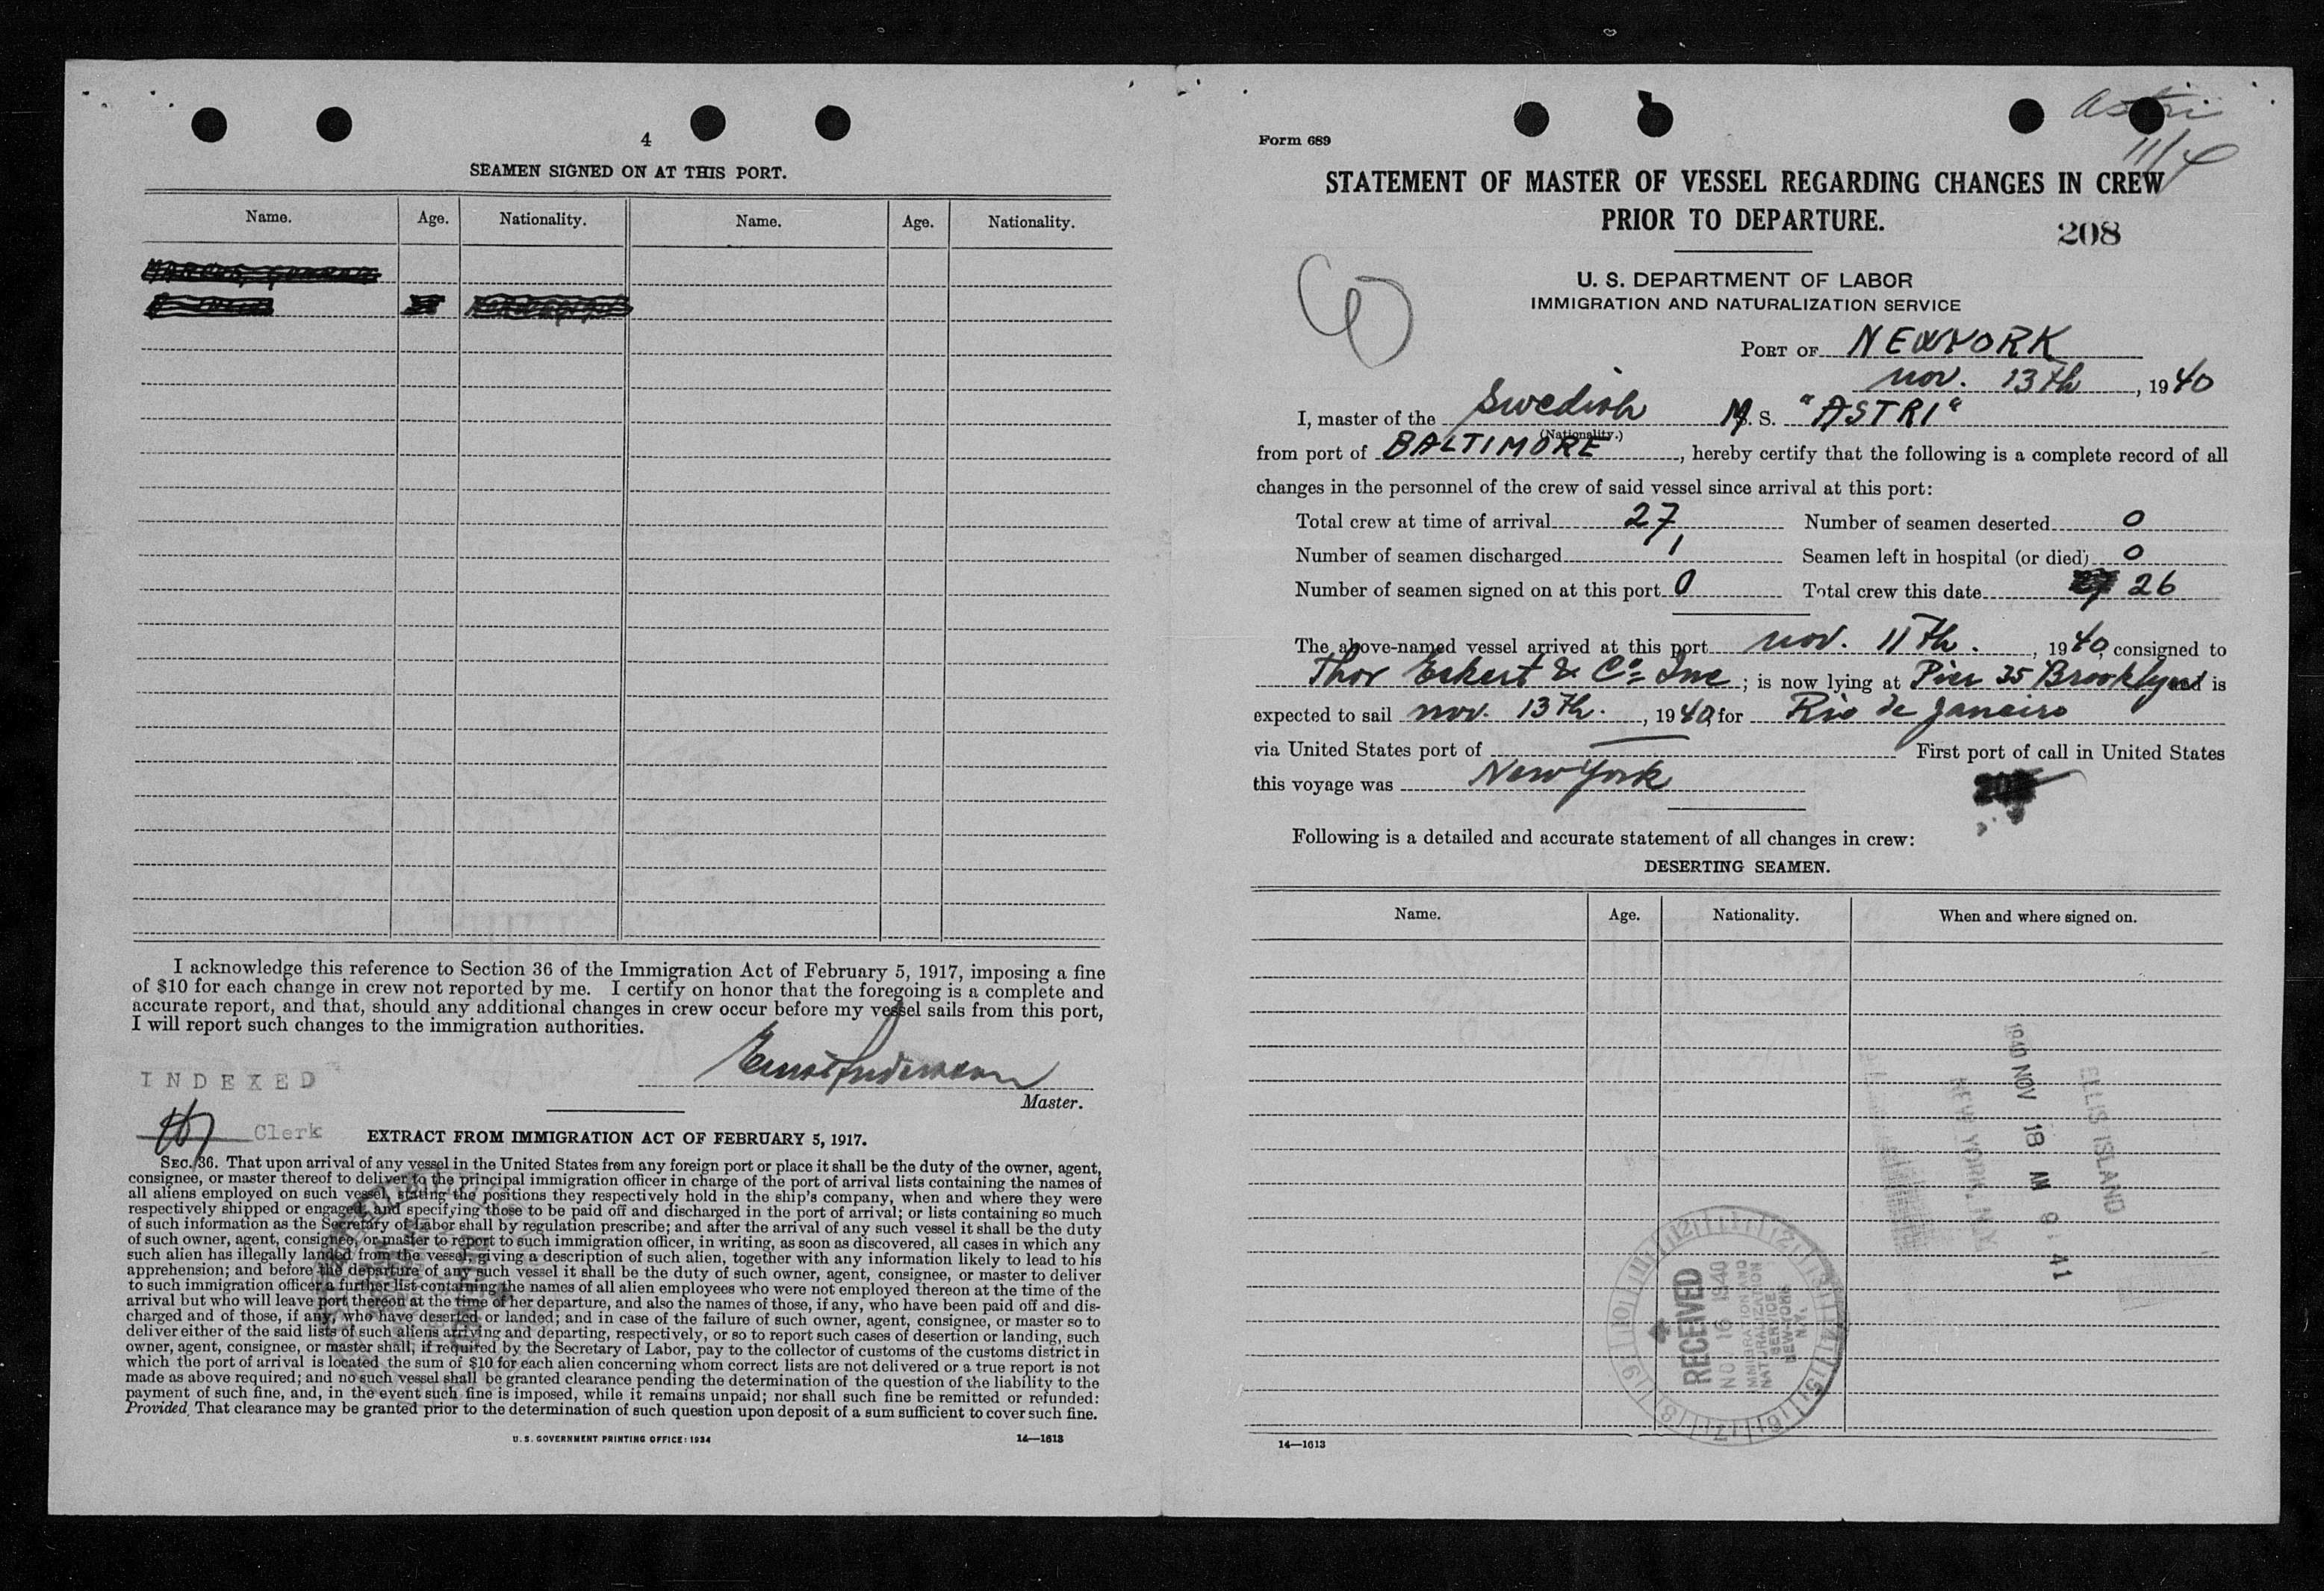 4
SEAMEN SIGNED ON AT THIS PORT.
Name. Age. Nationality. Name. Age. Nationality.
I acknowledge this reference to Section 36 of the Immigration Act of February 5, 1917, imposing a fine
of $10 for each change in crew not reported by me. I certify on honor that the foregoing is a complete and
accurate report, and that, should any additional changes in crew occur before my vessel sails from this port,
I will report such changes to the immigration authorities.
INDEXED
Master.
Clerk
EXTRACT FROM IMMIGRATION ACT OF FEBRUARY 5, 1917.
SEC. 36. That upon arrival of any vessel in the United States from any foreign port or place it shall be the duty of the owner, agent,
consignee, or master thereof to deliver to the principal immigration officer in charge of the port of arrival lists containing the names of
all aliens employed on such vessel, stating the positions they respectively hold in the ship's company, when and where they were
respectively shipped or engaged, and specifying those to be paid off and discharged in the port of arrival; or lists containing so much
of such information as the Secretary of Labor shall by regulation prescribe; and after the arrival of any such vessel it shall be the duty
of such owner, agent, consignee, or master to report to such immigration officer, in writing, as soon as discovered, all cases in which any
such alien has illegally landed from the vessel, giving a description of such alien, together with any information likely to lead to his
apprehension; and before the departure of any such vessel it shall be the duty of such owner, agent, consignee, or master to deliver
to such immigration officer a further list containing the names of all alien employees who were not employed thereon at the time of the
arrival but who will leave port thereon at the time of her departure, and also the names of those, if any, who have been paid off and dis-
charged and of those, if any, who have deserted or landed; and in case of the failure of such owner, agent, consignee, or master so to
deliver either of the said lists of such aliens arriving and departing, respectively, or so to report such cases of desertion or landing, such
owner, agent, consignee, or master shall, if required by the Secretary of Labor, pay to the collector of customs of the customs district in
which the port of arrival is located the sum of $10 for each alien concerning whom correct lists are not delivered or a true report is not
made as above required; and no such vessel shall be granted clearance pending the determination of the question of the liability to the
payment of such fine, and, in the event such fine is imposed, while it remains unpaid; nor shall such fine be remitted or refunded:
Provided, That clearance may be granted prior to the determination of such question upon deposit of a sum sufficient to cover such fine.
U. S. GOVERNMENT PRINTING OFFICE: 1934 14—1613
Astri
11/4
Form 689
STATEMENT OF MASTER OF VESSEL REGARDING CHANGES IN CREW
PRIOR TO DEPARTURE.
208
U. S. DEPARTMENT OF LABOR
IMMIGRATION AND NATURALIZATION SERVICE
PORT OF NEWYORK
nov. 13th, 1940
I, master of the Swedish M. S. "ASTRI"
(Nationality.)
from port of BALTIMORE, hereby certify that the following is a complete record of all
changes in the personnel of the crew of said vessel since arrival at this port:
Total crew at time of arrival 27 Number of seamen deserted 0
Number of seamen discharged 1 Seamen left in hospital (or died) 0
Number of seamen signed on at this port 0 Total crew this date 26
The above-named vessel arrived at this port nov. 11th., 1940, consigned to
Thor Eckert & Co Inc; is now lying at Pier 35 Brooklyn and is
expected to sail nov. 13th., 1940, for Rio de Janeiro
via United States port of — First port of call in United States
this voyage was New York
Following is a detailed and accurate statement of all changes in crew:
DESERTING SEAMEN.
Name. Age. Nationality. When and where signed on.
1940 NOV 18 AM 9:41
ELLIS ISLAND
NEW YORK, N.Y.
RECEIVED
NO 16 1940
IMMIGRATION AND
NATURALIZATION
SERVICE
NEW YORK
N.Y.
14—1613